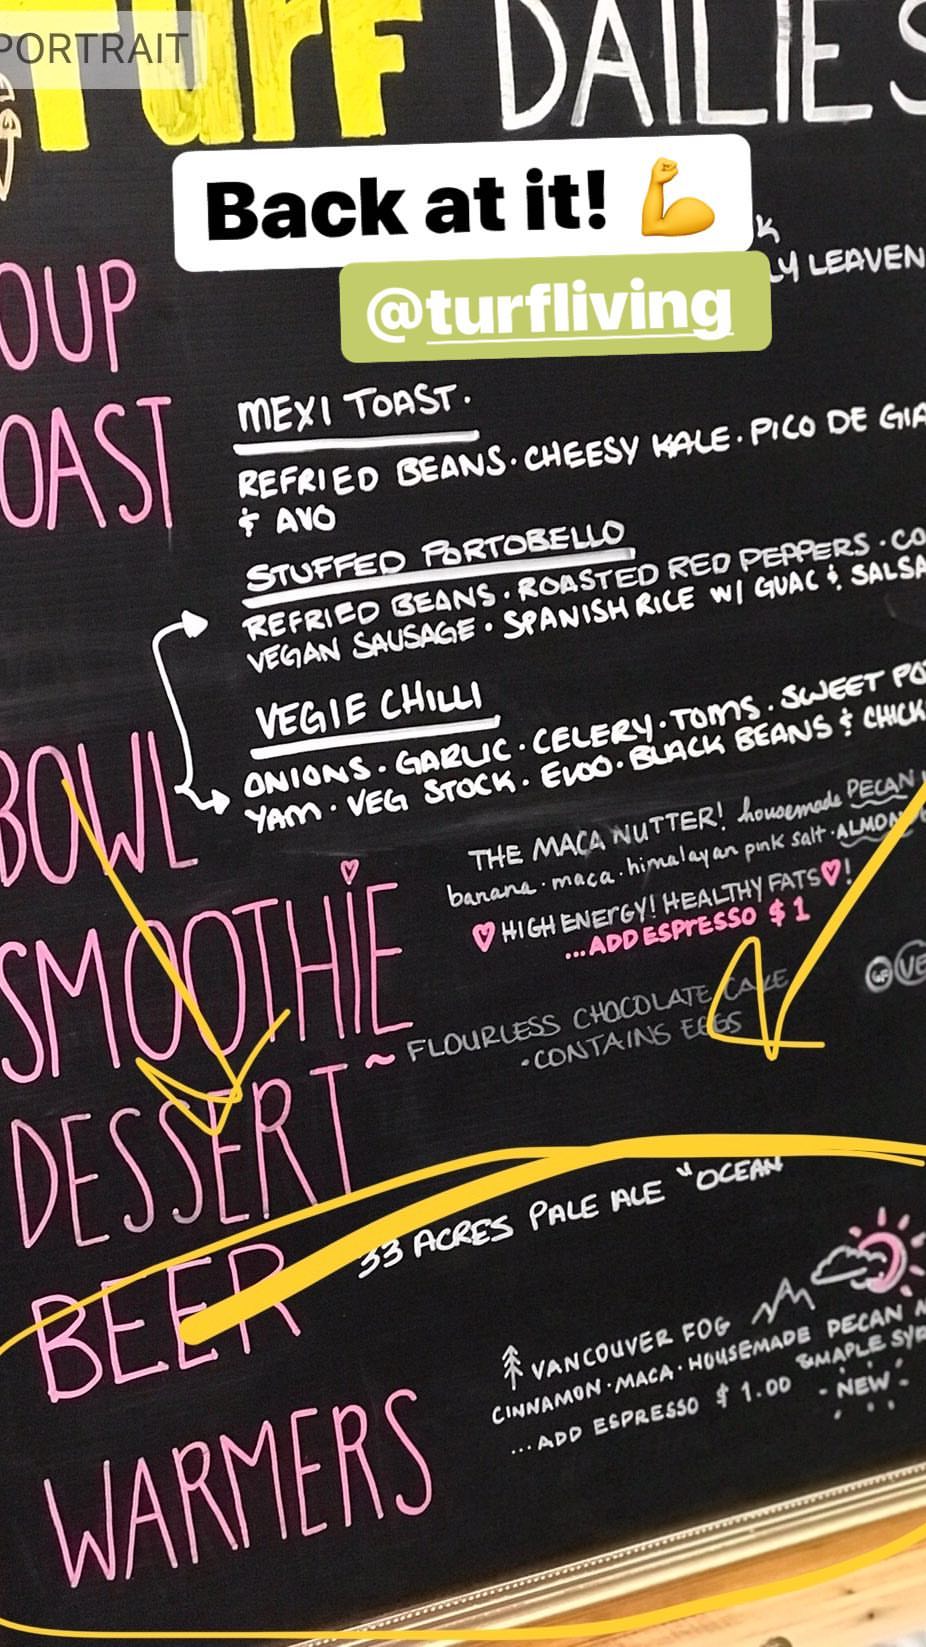 PORTRAIT
TURF DAILIES
Back at it! 💪
@turfliving
LY LEAVEN
OUP
OAST
MEXI TOAST.
REFRIED BEANS · CHEESY KALE · PICO DE GIA
& AVO
STUFFED PORTOBELLO
REFRIED BEANS · ROASTED RED PEPPERS · CO
VEGAN SAUSAGE · SPANISH RICE W/ GUAC & SALSA
BOWL
VEGIE CHILLI
ONIONS · GARLIC · CELERY · TOMS · SWEET PO
YAM · VEG STOCK · EVOO · BLACK BEANS & CHICK
SMOOTHIE
THE MACA NUTTER! housemade PECAN
banana · maca · himalayan pink salt · ALMON
♡ HIGH ENERGY! HEALTHY FATS ♡!
...ADD ESPRESSO $1
DESSERT ~
FLOURLESS CHOCOLATE CAKE
· CONTAINS EGGS
GF VE
BEER
33 ACRES PALE ALE "OCEAN
WARMERS
VANCOUVER FOG
CINNAMON · MACA · HOUSEMADE PECAN
& MAPLE SYR
...ADD ESPRESSO $1.00
- NEW -